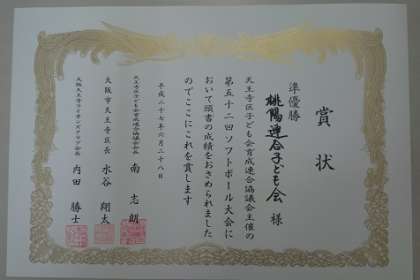 賞状
準優勝
桃陽連合子ども会 様
天王寺区子ども会育成連合協議会主催の
第五十二回ソフトボール大会に
おいて頭書の成績をおさめられました
のでここにこれを賞します
平成二十七年六月二十八日
天王寺区子ども会育成連合協議会会長
南 志朗
大阪市天王寺区長 水谷 翔太
大阪天王寺ライオンズクラブ会長
内田 勝士